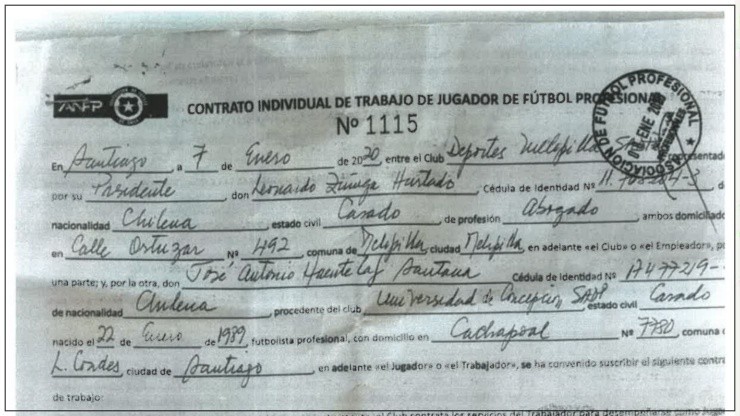 ANFP
CONTRATO INDIVIDUAL DE TRABAJO DE JUGADOR DE FÚTBOL PROFESIONAL
Nº 1115
ASOCIACION DE FUTBOL PROFESIONAL
ENE
En Santiago, a 7 de Enero de 2020, entre el Club Deportes Melipilla representado
por su Presidente don Leonardo Zúñiga Hurtado Cédula de Identidad Nº
nacionalidad Chilena estado civil Casado, de profesión Abogado, ambos domiciliado
en Calle Ortuzar Nº 492 comuna de Melipilla, ciudad Melipilla, en adelante «el Club» o «el Empleador», po
una parte; y, por la otra, don José Antonio Huentelaf Santana Cédula de Identidad Nº 17477219-
de nacionalidad Chilena, procedente del club Universidad de Concepcion SADP estado civil Casado
nacido el 22 de Enero de 1989, futbolista profesional, con domicilio en Cachapoal Nº 7780, comuna d
L. Condes, ciudad de Santiago, en adelante «el Jugador» o «el Trabajador», se ha convenido suscribir el siguiente contra
de trabajo:
el Club contrata los servicios del Trabajador para desempeñarse como Jugad